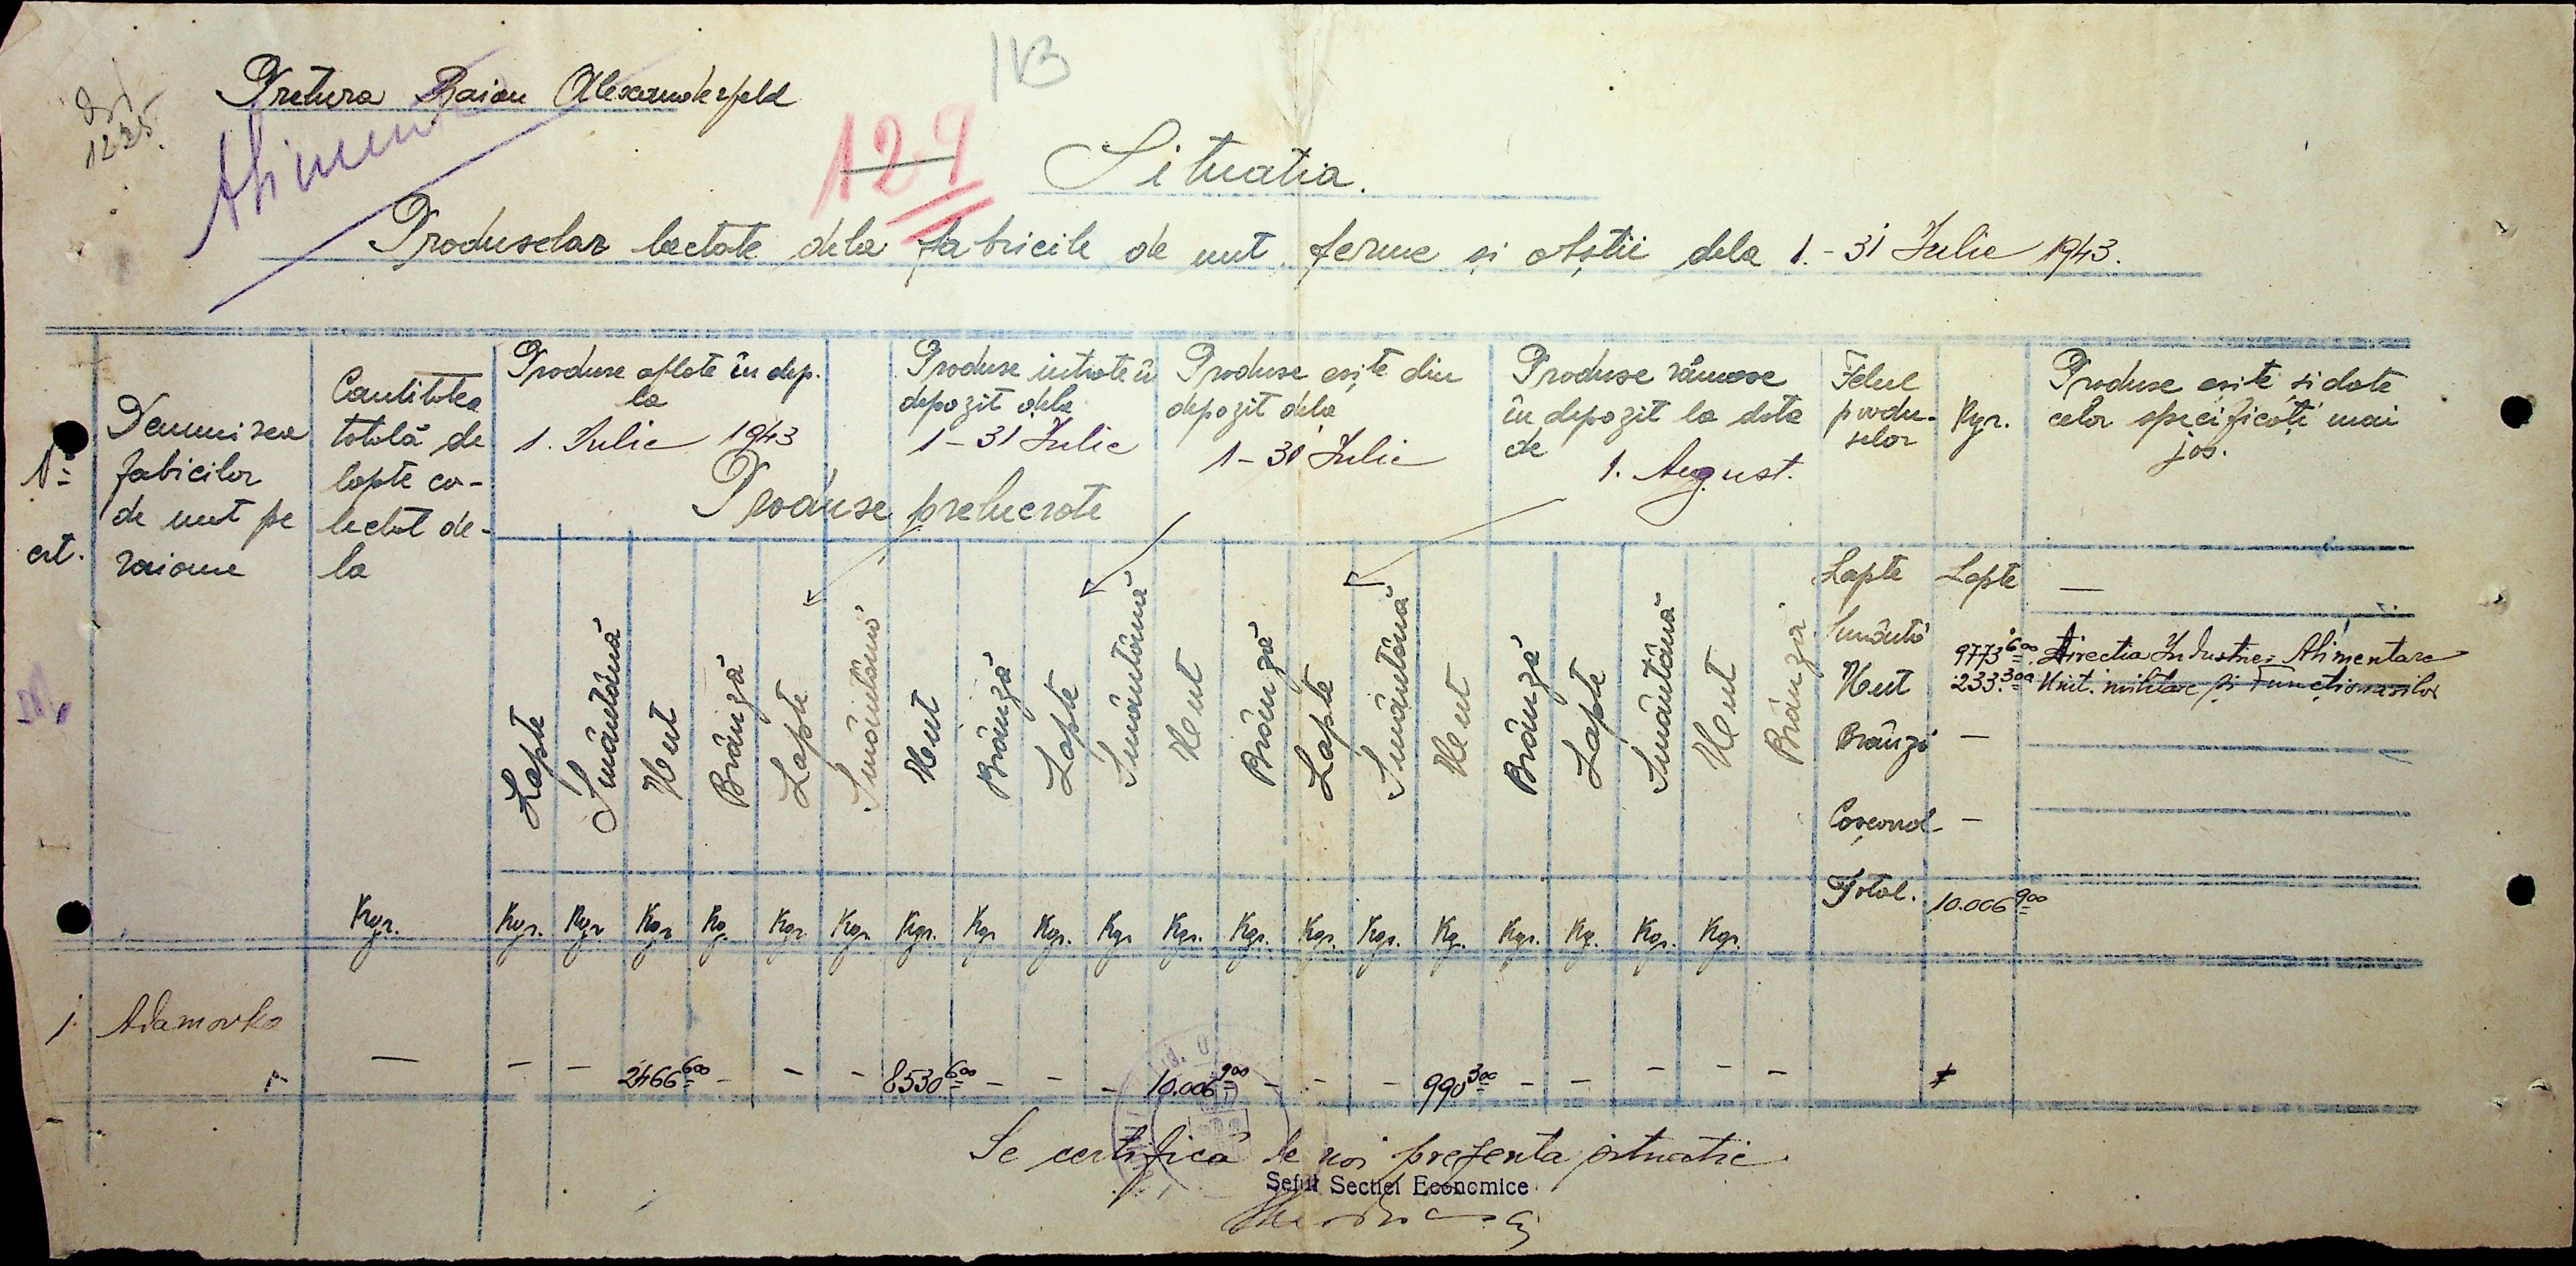 113
Pretura Raion Alexanderfeld
1225.
129
Situatia.
Produselor lactate dela fabricile de unt, ferme și obștii dela 1.-31 Iulie 1943.
Nº crt.
Denumirea fabicilor de unt pe raioane
Cantitatea totală de lapte co-lectat de-la
Produse aflate în dep. la 1. Iulie 1943
Produse intrate în depozit dela 1-31 Iulie
Produse eșite din depozit dela 1-31 Iulie
Produse rămase în depozit la data de 1. August.
Felul produ-selor
Kgr.
Produse eșite și date celor specificați mai jos.
Produse prelucrate
Lapte Smântână Unt Brânză Lapte Smântână Unt Brânză Lapte Smântână Unt Brânză Lapte Smântână Unt Brânză Lapte Smântână Unt Brânză
Lapte Lapte —
Smântâ
Unt 9773 600 Directia Industriei Alimentare
233.300 Unit. militare și Funcționarilor
Brânză —
Total. 10.006 900
Kgr. Kgr. Kgr. Kgr Kg. Kgr. Kgr. Kgr. Kgr Kgr. Kgr Kgr. Kgr. Kgr. Kgr. Kg. Kgr. Kg. Kgr. Kgr.
1. Adamovka
— — — 2466 600 — — — 8530 600 — — — 10.006 900 — — — 990 300 — — — — —
Se certifică de noi prezenta situatie
Șeful Secției Economice